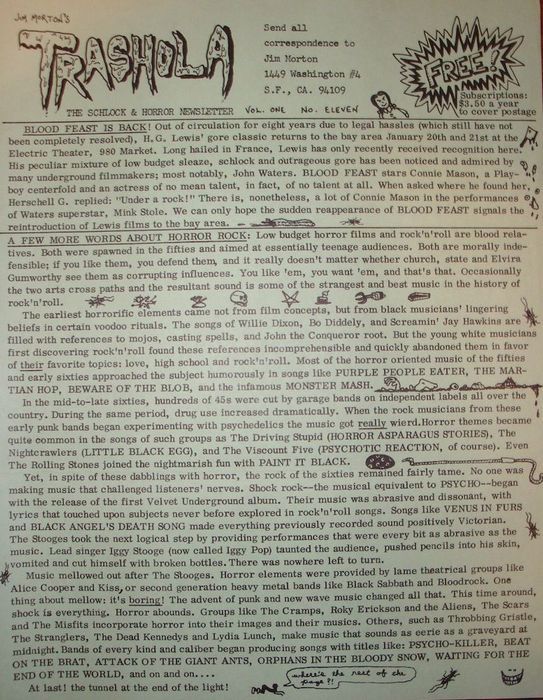 JIM MORTON'S
TRASHOLA
THE SCHLOCK & HORROR NEWSLETTER VOL. ONE NO. ELEVEN
Send all
correspondence to
Jim Morton
1449 Washington #4
S.F., CA. 94109
FREE!
Subscriptions:
$3.50 a year
to cover postage
BLOOD FEAST IS BACK! Out of circulation for eight years due to legal hassles (which still have not
been completely resolved), H.G. Lewis' gore classic returns to the bay area January 20th and 21st at the
Electric Theater, 980 Market. Long hailed in France, Lewis has only recently received recognition here.
His peculiar mixture of low budget sleaze, schlock and outrageous gore has been noticed and admired by
many underground filmmakers; most notably, John Waters. BLOOD FEAST stars Connie Mason, a Play-
boy centerfold and an actress of no mean talent, in fact, of no talent at all. When asked where he found her,
Herschell G. replied: "Under a rock!" There is, nonetheless, a lot of Connie Mason in the performances
of Waters superstar, Mink Stole. We can only hope the sudden reappearance of BLOOD FEAST signals the
reintroduction of Lewis films to the bay area.
A FEW MORE WORDS ABOUT HORROR ROCK: Low budget horror films and rock'n'roll are blood rela-
tives. Both were spawned in the fifties and aimed at essentially teenage audiences. Both are morally inde-
fensible; if you like them, you defend them, and it really doesn't matter whether church, state and Elvira
Gumworthy see them as corrupting influences. You like 'em, you want 'em, and that's that. Occasionally
the two arts cross paths and the resultant sound is some of the strangest and best music in the history of
rock'n'roll.
The earliest horrorific elements came not from film concepts, but from black musicians' lingering
beliefs in certain voodoo rituals. The songs of Willie Dixon, Bo Diddely, and Screamin' Jay Hawkins are
filled with references to mojos, casting spells, and John the Conqueror root. But the young white musicians
first discovering rock'n'roll found these references incomprehensible and quickly abandoned them in favor
of their favorite topics: love, high school and rock'n'roll. Most of the horror oriented music of the fifties
and early sixties approached the subject humorously in songs like PURPLE PEOPLE EATER, THE MAR-
TIAN HOP, BEWARE OF THE BLOB, and the infamous MONSTER MASH.
In the mid-to-late sixties, hundreds of 45s were cut by garage bands on independent labels all over the
country. During the same period, drug use increased dramatically. When the rock musicians from these
early punk bands began experimenting with psychedelics the music got really wierd. Horror themes became
quite common in the songs of such groups as The Driving Stupid (HORROR ASPARAGUS STORIES), The
Nightcrawlers (LITTLE BLACK EGG), and The Viscount Five (PSYCHOTIC REACTION, of course). Even
The Rolling Stones joined the nightmarish fun with PAINT IT BLACK.
Yet, in spite of these dabblings with horror, the rock of the sixties remained fairly tame. No one was
making music that challenged listeners' nerves. Shock rock--the musical equivalent to PSYCHO--began
with the release of the first Velvet Underground album. Their music was abrasive and dissonant, with
lyrics that touched upon subjects never before explored in rock'n'roll songs. Songs like VENUS IN FURS
and BLACK ANGEL'S DEATH SONG made everything previously recorded sound positively Victorian.
The Stooges took the next logical step by providing performances that were every bit as abrasive as the
music. Lead singer Iggy Stooge (now called Iggy Pop) taunted the audience, pushed pencils into his skin,
vomited and cut himself with broken bottles. There was nowhere left to turn.
Music mellowed out after The Stooges. Horror elements were provided by lame theatrical groups like
Alice Cooper and Kiss, or second generation heavy metal bands like Black Sabbath and Bloodrock. One
thing about mellow: it's boring! The advent of punk and new wave music changed all that. This time around,
shock is everything. Horror abounds. Groups like The Cramps, Roky Erickson and the Aliens, The Scars
and The Misfits incorporate horror into their images and their musics. Others, such as Throbbing Gristle,
The Stranglers, The Dead Kennedys and Lydia Lunch, make music that sounds as eerie as a graveyard at
midnight. Bands of every kind and caliber began producing songs with titles like: PSYCHO-KILLER, BEAT
ON THE BRAT, ATTACK OF THE GIANT ANTS, ORPHANS IN THE BLOODY SNOW, WAITING FOR THE
END OF THE WORLD, and on and on....
At last! the tunnel at the end of the light!
where's the rest of the
page?!